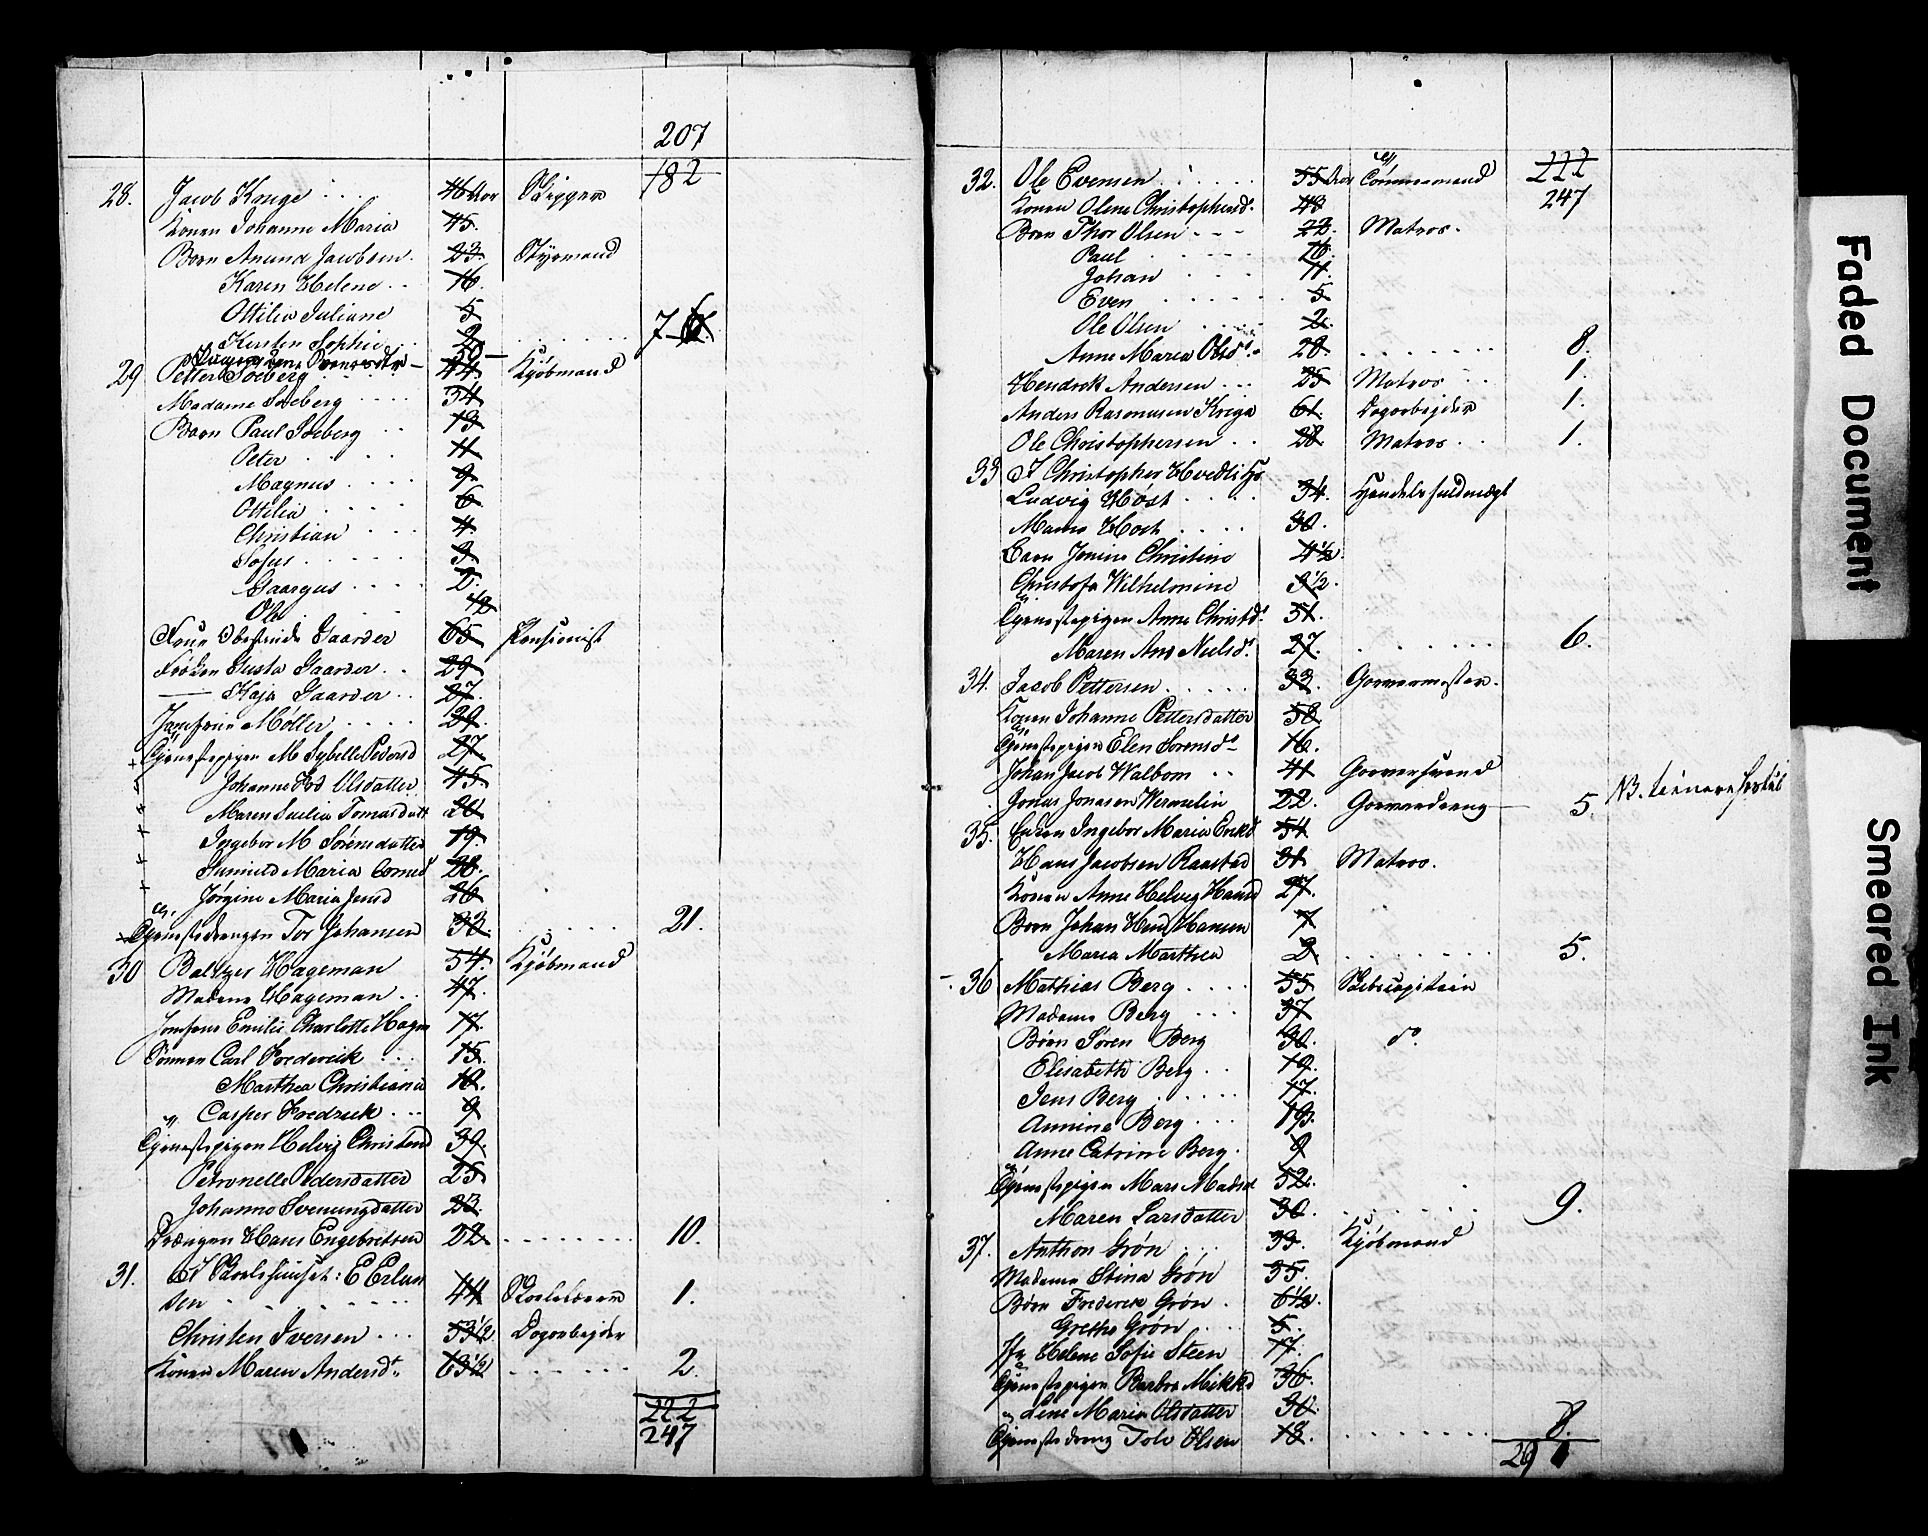 207
182
28. Jacob Kruge 46 Aar Skipper
Konen Johanne Maria 45.
Børn Anund Jacobsen 23. Styrmand
Karen Helene 16.
Ottilia Juliane 5
Kirsten Sophie 2 7
50
29 Petter Soeberg 44 Kjøbmand
Madame Soeberg 34
Børn Paul Soeberg 13
Peter 11
Magnus 9
Ottilia 6
Christian 4
Sofus 3
Gaargus 2.
Ole 1/2
Gaarder 65 Pensionist
Frøken Gusta Gaarder 29
— Kaja Gaarder 27.
Jomfrue Møller 29.
Tjenestepigen M Sybelle Pedersd 27
Johanne Olsdatter 45.
Maren Tomasdatt 20
Ingebor M Sørensdatter 19.
Gunild Maria 28.
Jørgine Maria Jensd 26
Tjenestedrengen Tor Johansen 32. 21.
30 Baltzer Hageman 54. Kjøbmand
Madame Hageman 47.
Jomfrue Emilie Charlotte Hagm 17.
Sønnen Carl Frederick 15.
Marthea Christiania 10.
Casper Fredrick 9
Tjenestepigen Helvig Christend 39.
Petronelle Pedersdatter 25
Johanne Svenungdatter 23.
Drængen Hans Engebretsen 22 10.
31. I Skolehuuset: E Erlun
sen 44 Skolelærer 1.
Christen Iversen 53 1/2 Dagarbejder
Konen Maren Andersdt. 63 1/2 2.
222
247
222
32. Ole Evensen 55 Aar Tømmermand 247
Konen Olene Christophersd. 48
Børn Thor Olsen 22. Matros.
Paul 16.
Johan 11.
Even 5
Ole Olsen 2.
Anne Maria Olsd. 28. 8.
Hendrek Andersen 25 Matros 1.
Anders Rasmusen Kriga 61. Dagarbejder 1.
Ole Christophersen 28. Matros 1.
33 I Christopher
Ludvig Høst 34. Handelsfuldmægt
Maren Høst 30.
Barn Jonine Christine 4 1/2.
Christofa Wilhelmine 3 1/2.
Tjenestepigen Anne Christd. 51.
Maren Ane Nielsd. 27. 6.
34. Jacob Pettersen 33. Garvermester.
Konen Johanne Pettersdatter 58.
Tjenestepigen Elen Sorensd. 16.
Johan Jacob Walbom 41 Garversvend
Jonas Jonasen Wermelin 22. Garverdreng 5. NB.
35. Enken Ingebor Maria Erikd 54
Hans Jacobsen Raastad 31 Matros.
Konen Anne Helvig Hansd 27.
Børn Johan Hend Hansen 7
Maria Marthea 2. 5.
36 Mathias Berg 55 Skibscapitain
Madame Berg 37
Børn Søren Berg 30. do.
Elisabeth Berg 19.
Jens Berg 17.
Annine Berg 13.
Anne Catrine Berg 9
Tjenestepigen Mari Madsd 52.
Maren Larsdatter 30. 9.
37. Anthon Grøn 33. Kjøbmand
Madame Stina Grøn 35.
Børn Frederik Grøn 6 1/2.
Grethe Grøn 5.
Jfr Helene Sofie Steen 17.
Tjenestepigen Barbra Mikkd 36.
" Lene Maria Olsdatter 30.
Tjenestedreng Tolv Olsen 18. 8.
29
Faded Document
Smeared Ink